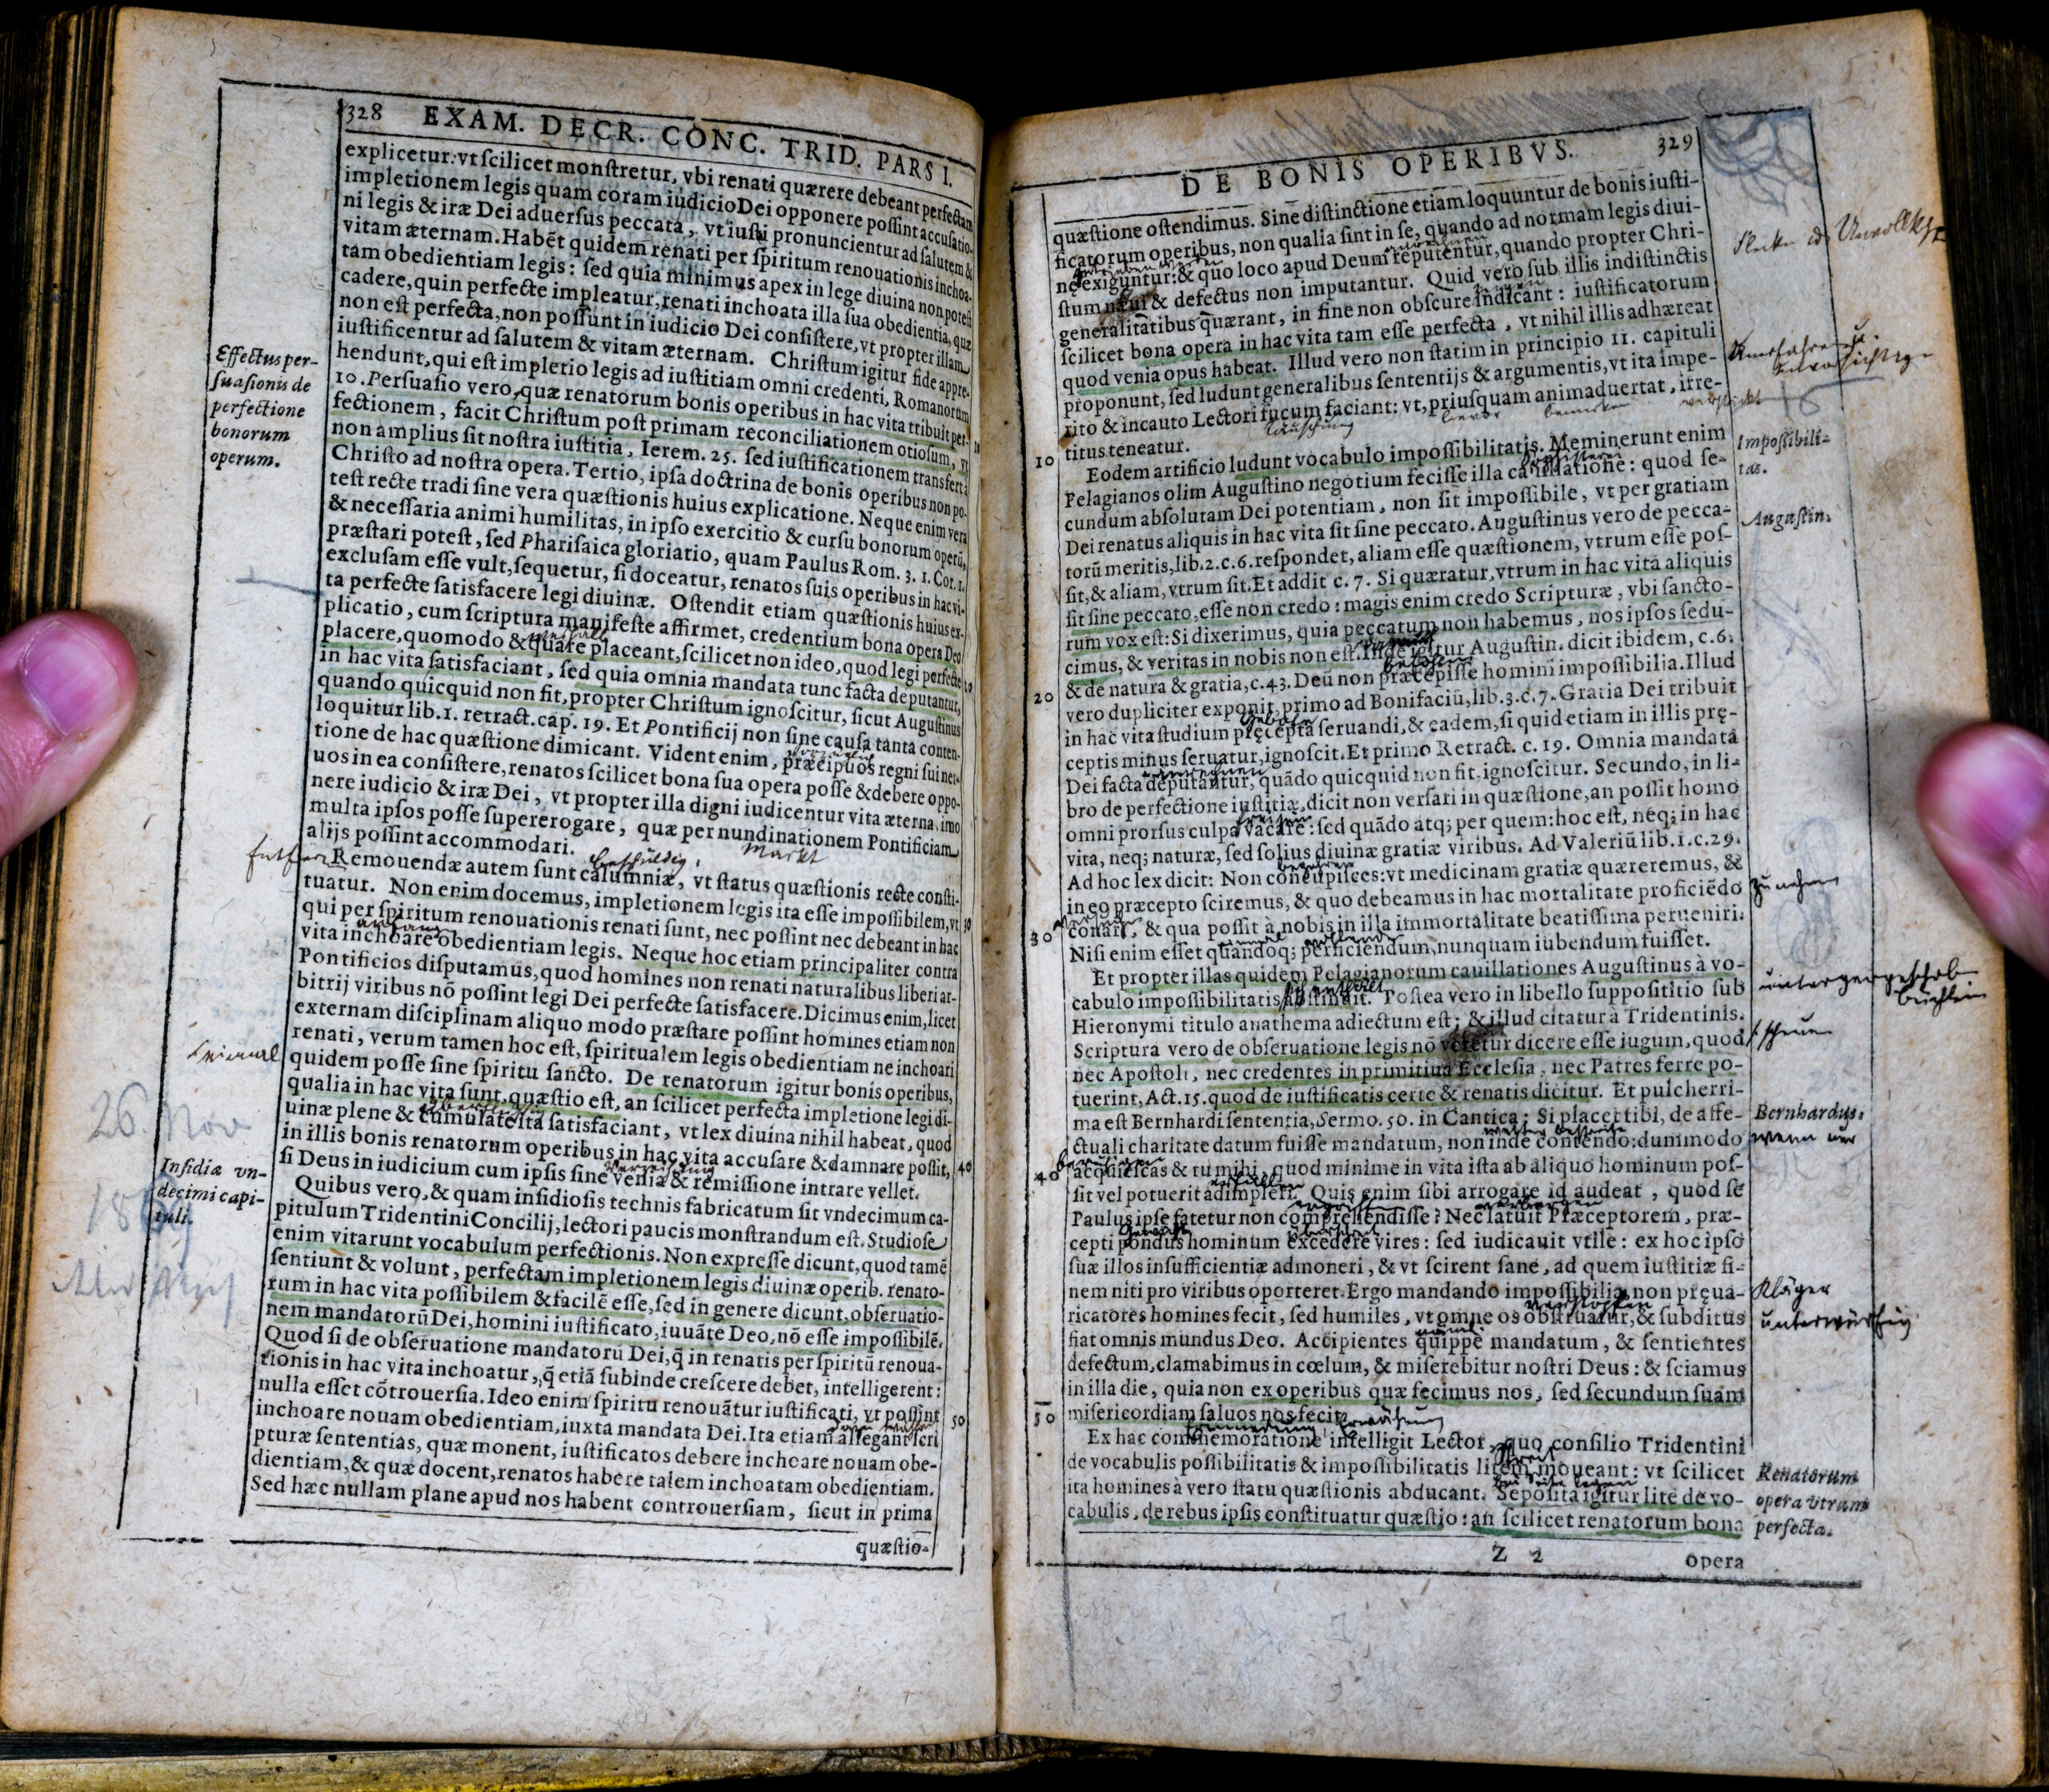 328 EXAM. DECR. CONC. TRID. PARS I.
explicetur: vt ſcilicet monſtretur, vbi renati quærere debeant perfectam
impletionem legis quam coram iudicio Dei opponere poſſint accuſatio-
ni legis & iræ Dei aduerſus peccata, vt iuſti pronuncientur ad ſalutem &
vitam æternam. Habẽt quidem renati per ſpiritum renouationis inchoa-
tam obedientiam legis: ſed quia minimus apex in lege diuina non poteſt
cadere, quin perfecte impleatur, renati inchoata illa ſua obedientia, quæ
non eſt perfecta, non poſſunt in iudicio Dei conſiſtere, vt propter illam
iuſtificentur ad ſalutem & vitam æternam. Chriſtum igitur fide appre-
hendunt, qui eſt impletio legis ad iuſtitiam omni credenti, Romanorum
10. Perſuaſio vero, quæ renatorum bonis operibus in hac vita tribuit per-
fectionem, facit Chriſtum poſt primam reconciliationem otioſum, vt
non amplius ſit noſtra iuſtitia, Ierem. 25. ſed iuſtificationem transfert à
Chriſto ad noſtra opera. Tertio, ipſa doctrina de bonis operibus non po-
teſt recte tradi ſine vera quæſtionis huius explicatione. Neque enim vera
& neceſſaria animi humilitas, in ipſo exercitio & curſu bonorum operũ,
præſtari poteſt, ſed Phariſaica gloriatio, quam Paulus Rom. 3. 1. Cor. 1.
excluſam eſſe vult, ſequetur, ſi doceatur, renatos ſuis operibus in hac vi-
ta perfecte ſatisfacere legi diuinæ. Oſtendit etiam quæſtionis huius ex-
plicatio, cum ſcriptura manifeſte affirmet, credentium bona opera Deo
placere, quomodo & quare placeant, ſcilicet non ideo, quod legi perfecte
in hac vita ſatisfaciant, ſed quia omnia mandata tunc facta deputantur,
quando quicquid non fit, propter Chriſtum ignoſcitur, ſicut Auguſtinus
loquitur lib. 1. retract. cap. 19. Et Pontificij non ſine cauſa tanta conten-
tione de hac quæſtione dimicant. Vident enim, præcipuos regni ſui ner-
uos in ea conſiſtere, renatos ſcilicet bona ſua opera poſſe & debere oppo-
nere iudicio & iræ Dei, vt propter illa digni iudicentur vita æterna, imo
multa ipſos poſſe ſupererogare, quæ per nundinationem Pontificiam
alijs poſſint accommodari.
Remouendæ autem ſunt calumniæ, vt ſtatus quæſtionis recte conſti-
tuatur. Non enim docemus, impletionem legis ita eſſe impoſſibilem, vt
qui per ſpiritum renouationis renati ſunt, nec poſſint nec debeant in hac
vita inchoare obedientiam legis. Neque hoc etiam principaliter contra
Pontificios diſputamus, quod homines non renati naturalibus liberi ar-
bitrij viribus nõ poſſint legi Dei perfecte ſatisfacere. Dicimus enim, licet
externam diſciplinam aliquo modo præſtare poſſint homines etiam non
renati, verum tamen hoc eſt, ſpiritualem legis obedientiam ne inchoari
quidem poſſe ſine ſpiritu ſancto. De renatorum igitur bonis operibus,
qualia in hac vita ſunt, quæſtio eſt, an ſcilicet perfecta impletione legi di-
uinæ plene & cumulate ita ſatisfaciant, vt lex diuina nihil habeat, quod
in illis bonis renatorum operibus in hac vita accuſare & damnare poſſit,
ſi Deus in iudicium cum ipſis ſine venia & remiſſione intrare vellet.
Quibus vero, & quam inſidioſis technis fabricatum ſit vndecimum ca-
pitulum Tridentini Concilij, lectori paucis monſtrandum eſt. Studioſe
enim vitarunt vocabulum perfectionis. Non expreſſe dicunt, quod tamẽ
ſentiunt & volunt, perfectam impletionem legis diuinæ operib. renato-
rum in hac vita poſſibilem & facilẽ eſſe, ſed in genere dicunt, obſeruatio-
nem mandatorũ Dei, homini iuſtificato, iuuãte Deo, nõ eſſe impoſſibilẽ.
Quod ſi de obſeruatione mandatorũ Dei, q̃ in renatis per ſpiritũ renoua-
tionis in hac vita inchoatur, q̃ etiã ſubinde creſcere debet, intelligerent:
nulla eſſet cõtrouerſia. Ideo enim ſpiritu renouãtur iuſtificati, vt poſſint
inchoare nouam obedientiam, iuxta mandata Dei. Ita etiam allegant ſcri
pturæ ſententias, quæ monent, iuſtificatos debere inchoare nouam obe-
dientiam, & quæ docent, renatos habere talem inchoatam obedientiam.
Sed hæc nullam plane apud nos habent controuerſiam, ſicut in prima
quæſtio-
Effectus per-
ſuaſionis de
perfectione
bonorum
operum.
26. Nov
Inſidiæ vn-
decimi capi-
tuli.
Markt
40
50
DE BONIS OPERIBVS. 329
quæſtione oſtendimus. Sine diſtinctione etiam loquuntur de bonis iuſti-
ficatorum operibus, non qualia ſint in ſe, quando ad normam legis diui-
nę exiguntur: & quo loco apud Deum reputentur, quando propter Chri-
ſtum næui & defectus non imputantur. Quid vero ſub illis indiſtinctis
generalitatibus quærant, in fine non obſcure indicant: iuſtificatorum
ſcilicet bona opera in hac vita tam eſſe perfecta, vt nihil illis adhæreat
quod venia opus habeat. Illud vero non ſtatim in principio 11. capituli
proponunt, ſed ludunt generalibus ſententijs & argumentis, vt ita impe-
rito & incauto Lectori fucum faciant: vt, priuſquam animaduertat, irre-
titus teneatur.
Eodem artificio ludunt vocabulo impoſſibilitatis. Meminerunt enim
Pelagianos olim Auguſtino negotium feciſſe illa cauillatione: quod ſe-
cundum abſolutam Dei potentiam, non ſit impoſſibile, vt per gratiam
Dei renatus aliquis in hac vita ſit ſine peccato. Auguſtinus vero de pecca-
torũ meritis, lib. 2. c. 6. reſpondet, aliam eſſe quæſtionem, vtrum eſſe poſ-
ſit, & aliam, vtrum ſit. Et addit c. 7. Si quæratur, vtrum in hac vita aliquis
ſit ſine peccato, eſſe non credo: magis enim credo Scripturæ, vbi ſancto-
rum vox eſt: Si dixerimus, quia peccatum non habemus, nos ipſos ſedu-
cimus, & veritas in nobis non eſt. Inde igitur Auguſtin. dicit ibidem, c. 6.
& de natura & gratia, c. 43. Deũ non præcepiſſe homini impoſſibilia. Illud
vero dupliciter exponit, primo ad Bonifaciũ, lib. 3. c. 7. Gratia Dei tribuit
in hac vita ſtudium pręcepta ſeruandi, & eadem, ſi quid etiam in illis prę-
ceptis minus ſeruatur, ignoſcit. Et primo Retract. c. 19. Omnia mandata
Dei facta deputantur, quãdo quicquid non fit, ignoſcitur. Secundo, in li-
bro de perfectione iuſtitiæ, dicit non verſari in quæſtione, an poſſit homo
omni prorſus culpa vacare: ſed quãdo atq; per quem: hoc eſt, neq; in hac
vita, neq; naturæ, ſed ſolius diuinæ gratiæ viribus. Ad Valeriũ lib. 1. c. 29.
Ad hoc lex dicit: Non concupiſces: vt medicinam gratiæ quæreremus, &
in eo præcepto ſciremus, & quo debeamus in hac mortalitate proficiẽdo
conari, & qua poſſit à nobis in illa immortalitate beatiſſima perueniri.
Niſi enim eſſet quandoq; perficiendum, nunquam iubendum fuiſſet.
Et propter illas quidem Pelagianorum cauillationes Auguſtinus à vo-
cabulo impoſſibilitatis abſtinuit. Poſtea vero in libello ſuppoſititio ſub
Hieronymi titulo anathema adiectum eſt; & illud citatur à Tridentinis.
Scriptura vero de obſeruatione legis nõ veretur dicere eſſe iugum, quod
nec Apoſtoli, nec credentes in primitiua Eccleſia, nec Patres ferre po-
tuerint, Act. 15. quod de iuſtificatis certe & renatis dicitur. Et pulcherri-
ma eſt Bernhardi ſententia, Sermo. 50. in Cantica: Si placet tibi, de affe-
ctuali charitate datum fuiſſe mandatum, non inde contendo: dummodo
acquieſcas & tu mihi, quod minime in vita iſta ab aliquo hominum poſ-
ſit vel potuerit adimpleri. Quis enim ſibi arrogare id audeat, quod ſe
Paulus ipſe fatetur non comprehendiſſe? Nec latuit Præceptorem, præ-
cepti pondus hominum excedere vires: ſed iudicauit vtile: ex hoc ipſo
ſuæ illos inſufficientiæ admoneri, & vt ſcirent ſane, ad quem iuſtitiæ fi-
nem niti pro viribus oporteret. Ergo mandando impoſſibilia, non pręua-
ricatores homines fecit, ſed humiles, vt omne os obſtruatur, & ſubditus
fiat omnis mundus Deo. Accipientes quippe mandatum, & ſentientes
defectum, clamabimus in cœlum, & miſerebitur noſtri Deus: & ſciamus
in illa die, quia non ex operibus quæ fecimus nos, ſed ſecundum ſuam
miſericordiam ſaluos nos fecit.
Ex hac commemoratione intelligit Lector, quo conſilio Tridentini
de vocabulis poſſibilitatis & impoſſibilitatis litem moueant: vt ſcilicet
ita homines à vero ſtatu quæſtionis abducant. Sepoſita igitur lite de vo-
cabulis, de rebus ipſis conſtituatur quæſtio: an ſcilicet renatorum bona
Z 2 opera
10
20
30
40
50
Impoſſibili-
tas.
Auguſtin.
Bernhardus.
Kläger
unterwürfig
Renatorum
opera vtrum
perfecta.